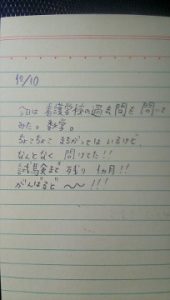 12/10
今日は看護学校の過去問を問いて
みた。数学。
ちょこちょこまちがってはいるけど
なんとなく問けてた!!
試験まで残り1ヵ月!!
がんばるぞ〜〜!!!